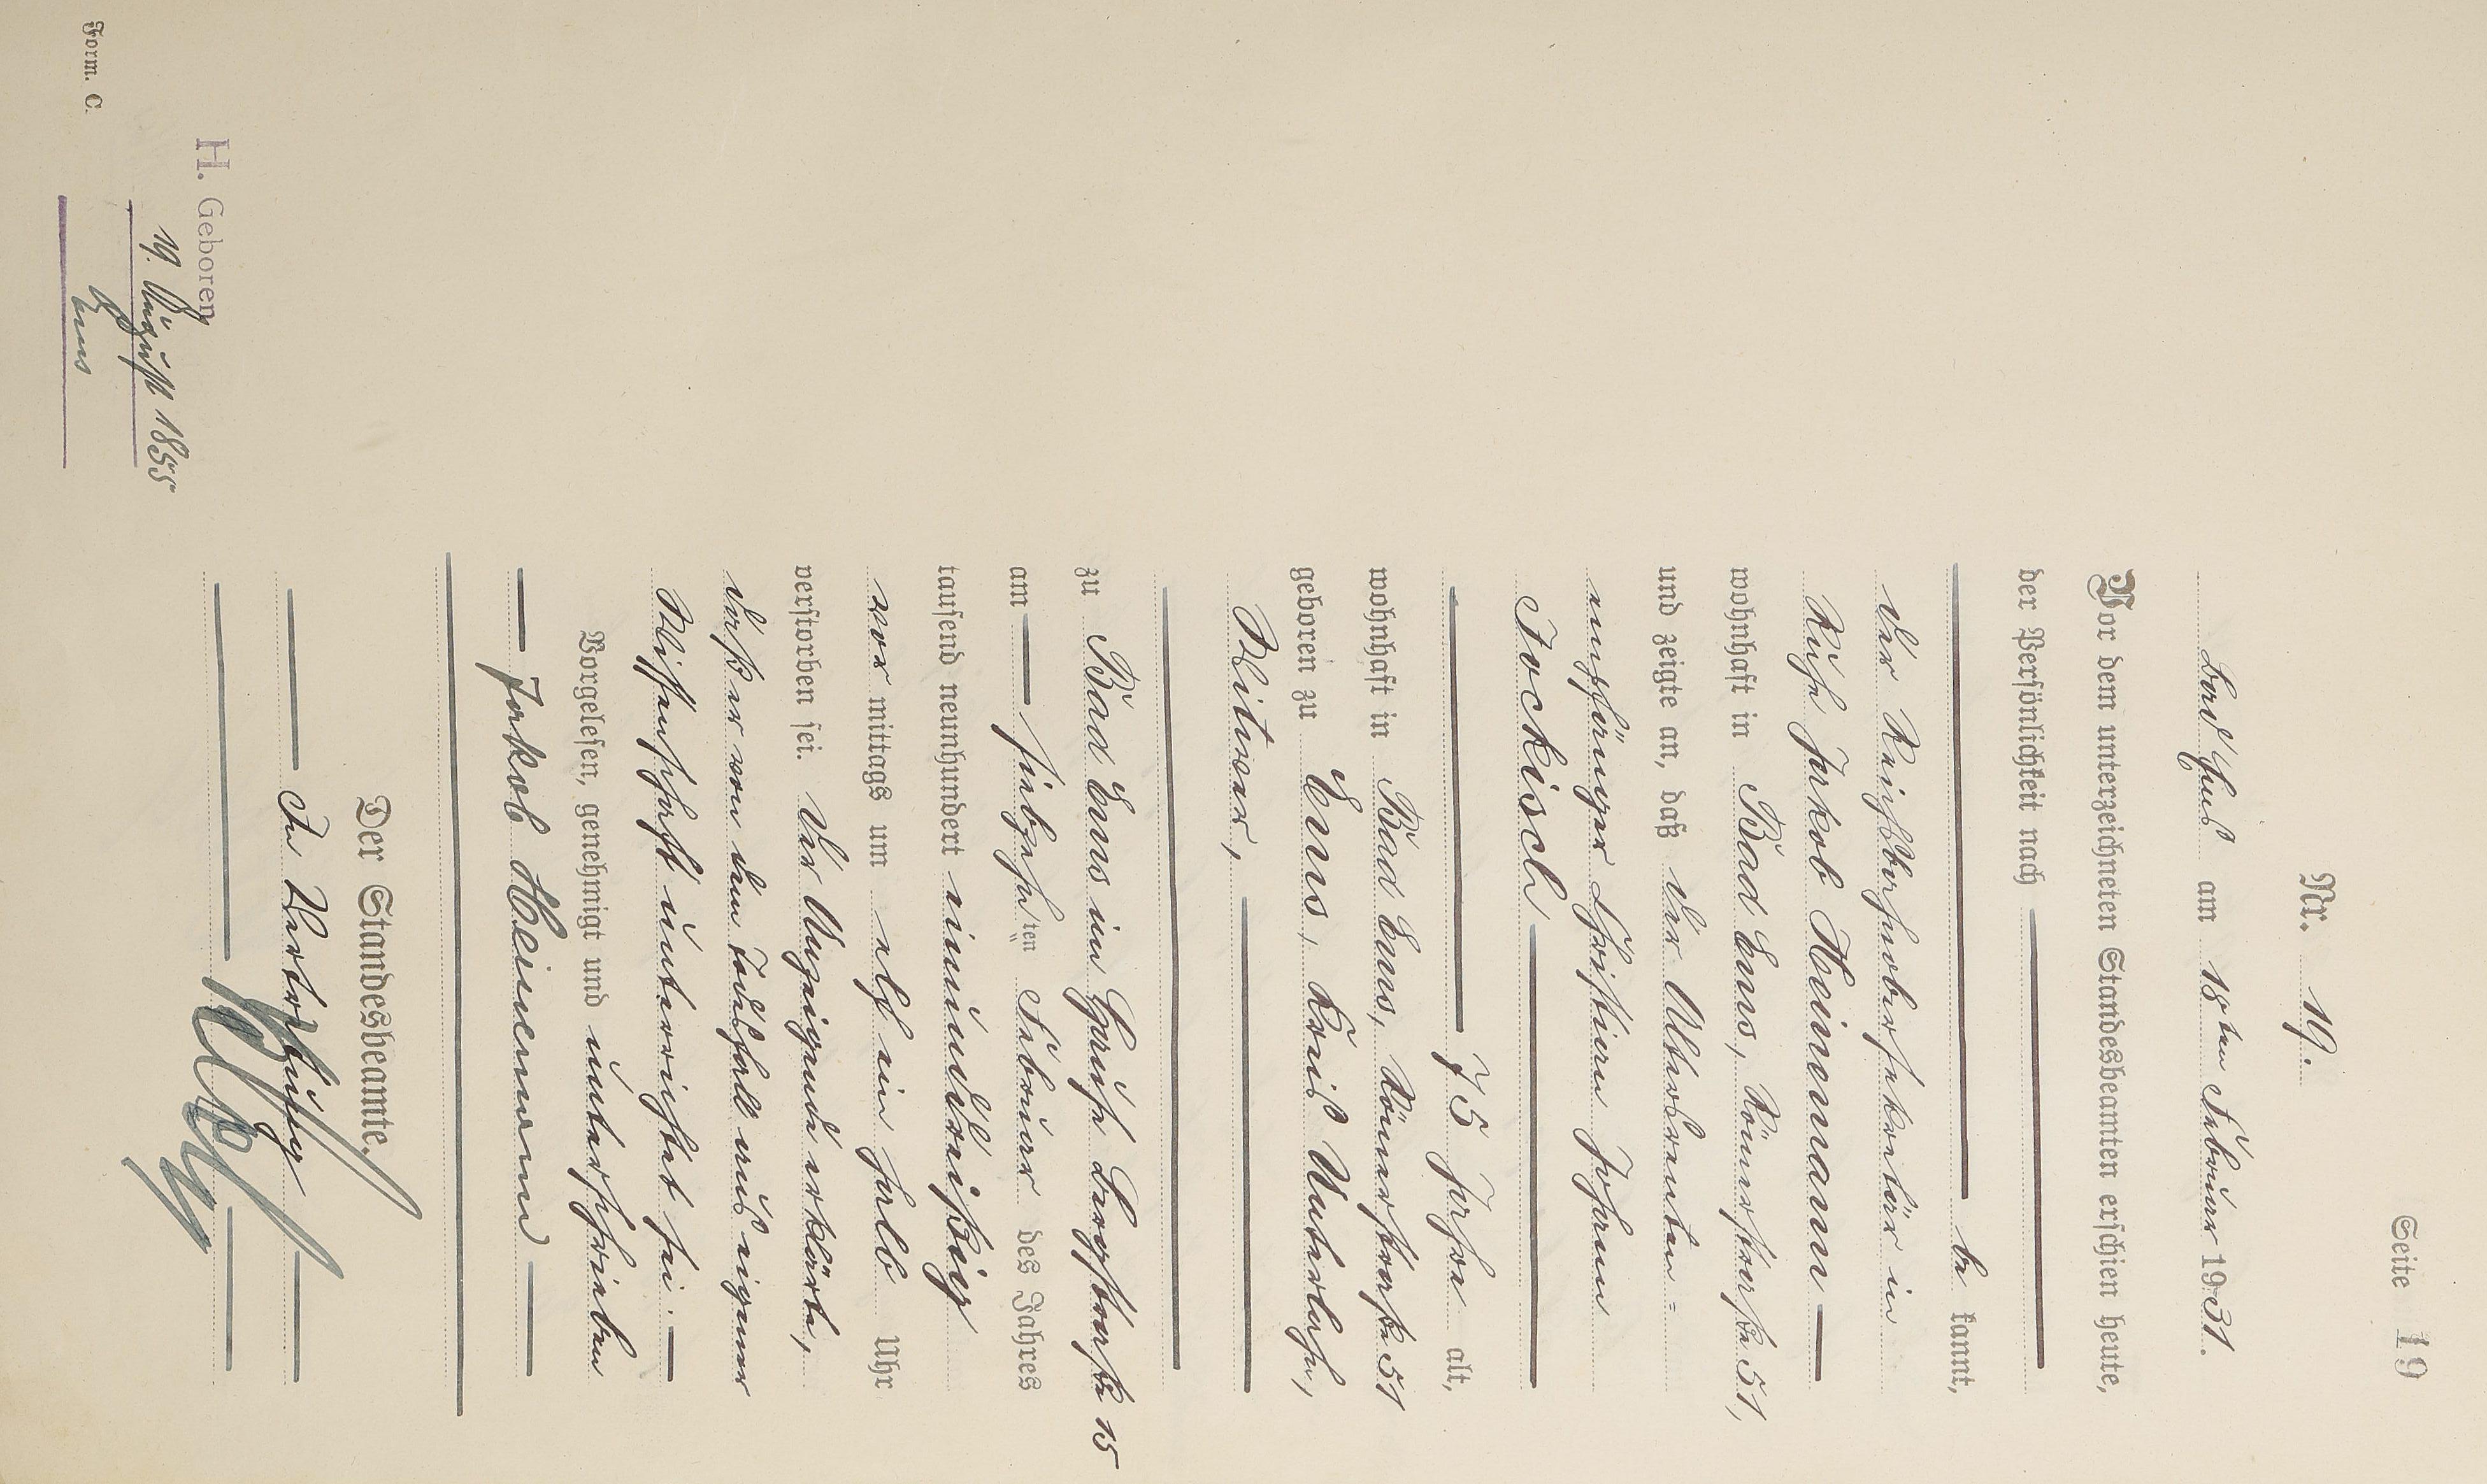 Seite 19
Nr. 19.
Bad Ems am 18ten Februar 1931.
Vor dem unterzeichneten Standesbeamten erschien heute,
der Persönlichkeit nach
be kannt,
der Reichsbahnobersekretär in
Ruhe Jakob Heinemann
wohnhaft in Bad Ems, Römerstraße 51,
und zeigte an, daß der Altersrenten=
empfänger Christian Johann
Jockisch
75 Jahre alt,
wohnhaft in Bad Ems, Römerstraße 51
geboren zu Ems, Kreis Unterlahn,
Witwer,
zu Bad Ems im Hause 15
am siebzehn ten Februar des Jahres
tausend neunhundert einunddreißig
vor mittags um elf ein halb Uhr
verstorben sei. Der Anzeigende erklärte,
daß er von dem Todesfall aus eigener
Wissenschaft unterrichtet sei.
Vorgelesen, genehmigt und unterschrieben
Jakob Heinemann
Der Standesbeamte.
In Vertretung
H. Geboren
19. August 1855
Ems
Form. C.